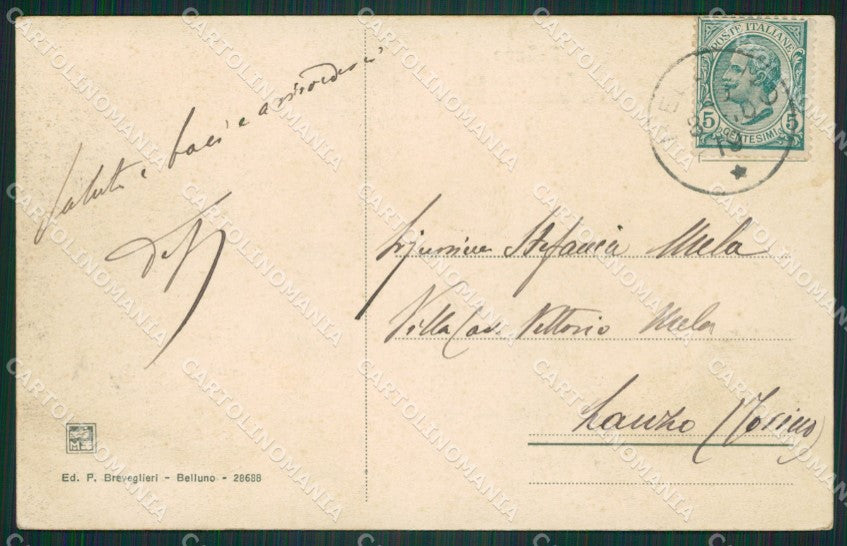 Saluti e baci e arrivederci
POSTE ITALIANE
5 5
CENTESIMI
Signorina Stefania Mela
Villa Cav. Vittorio Mela
Lanzo (Torino)
Ed. P. Breveglieri - Belluno - 28688
CARTOLINOMANIA